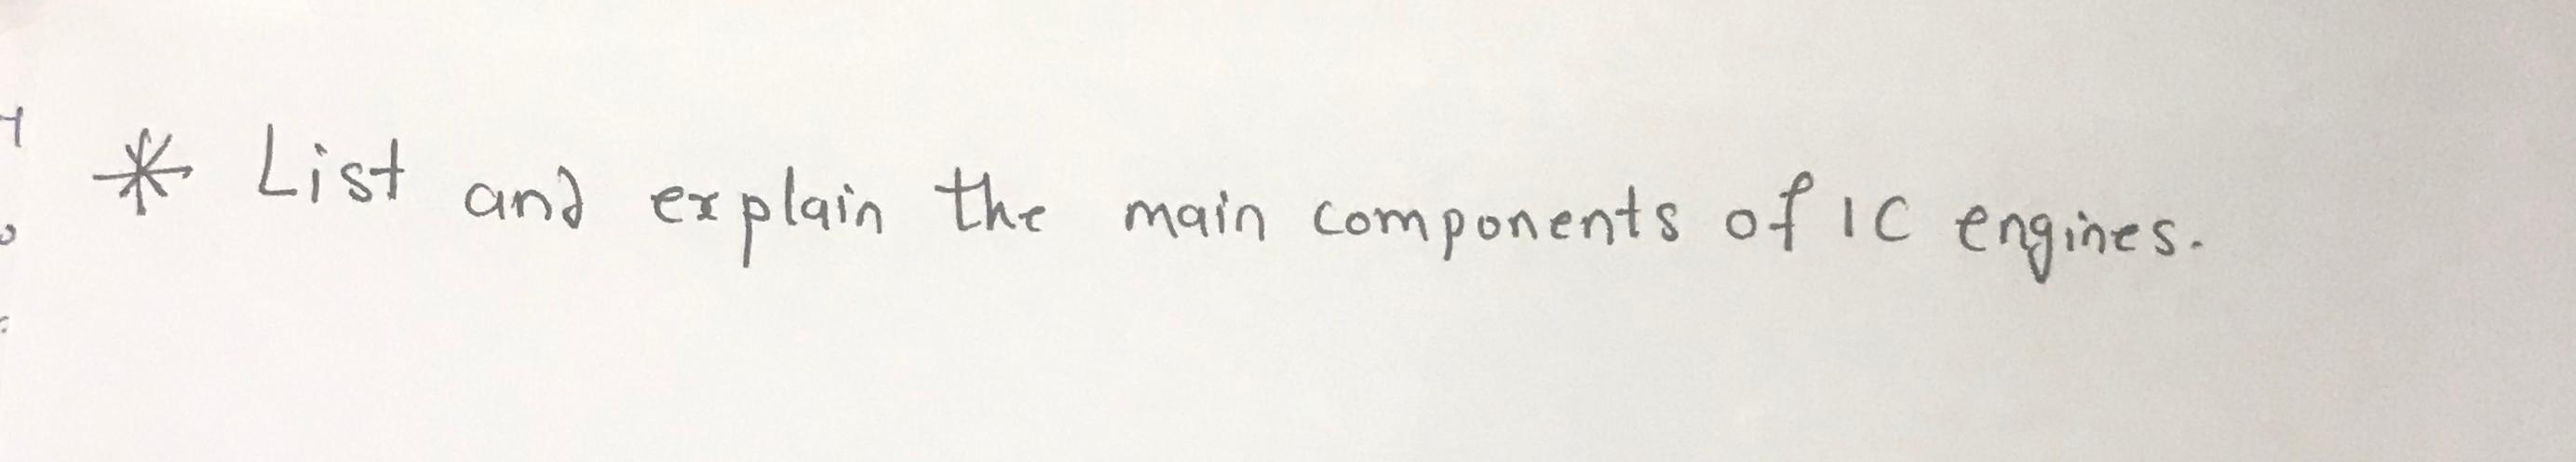 * List and explain the main components of IC engines.